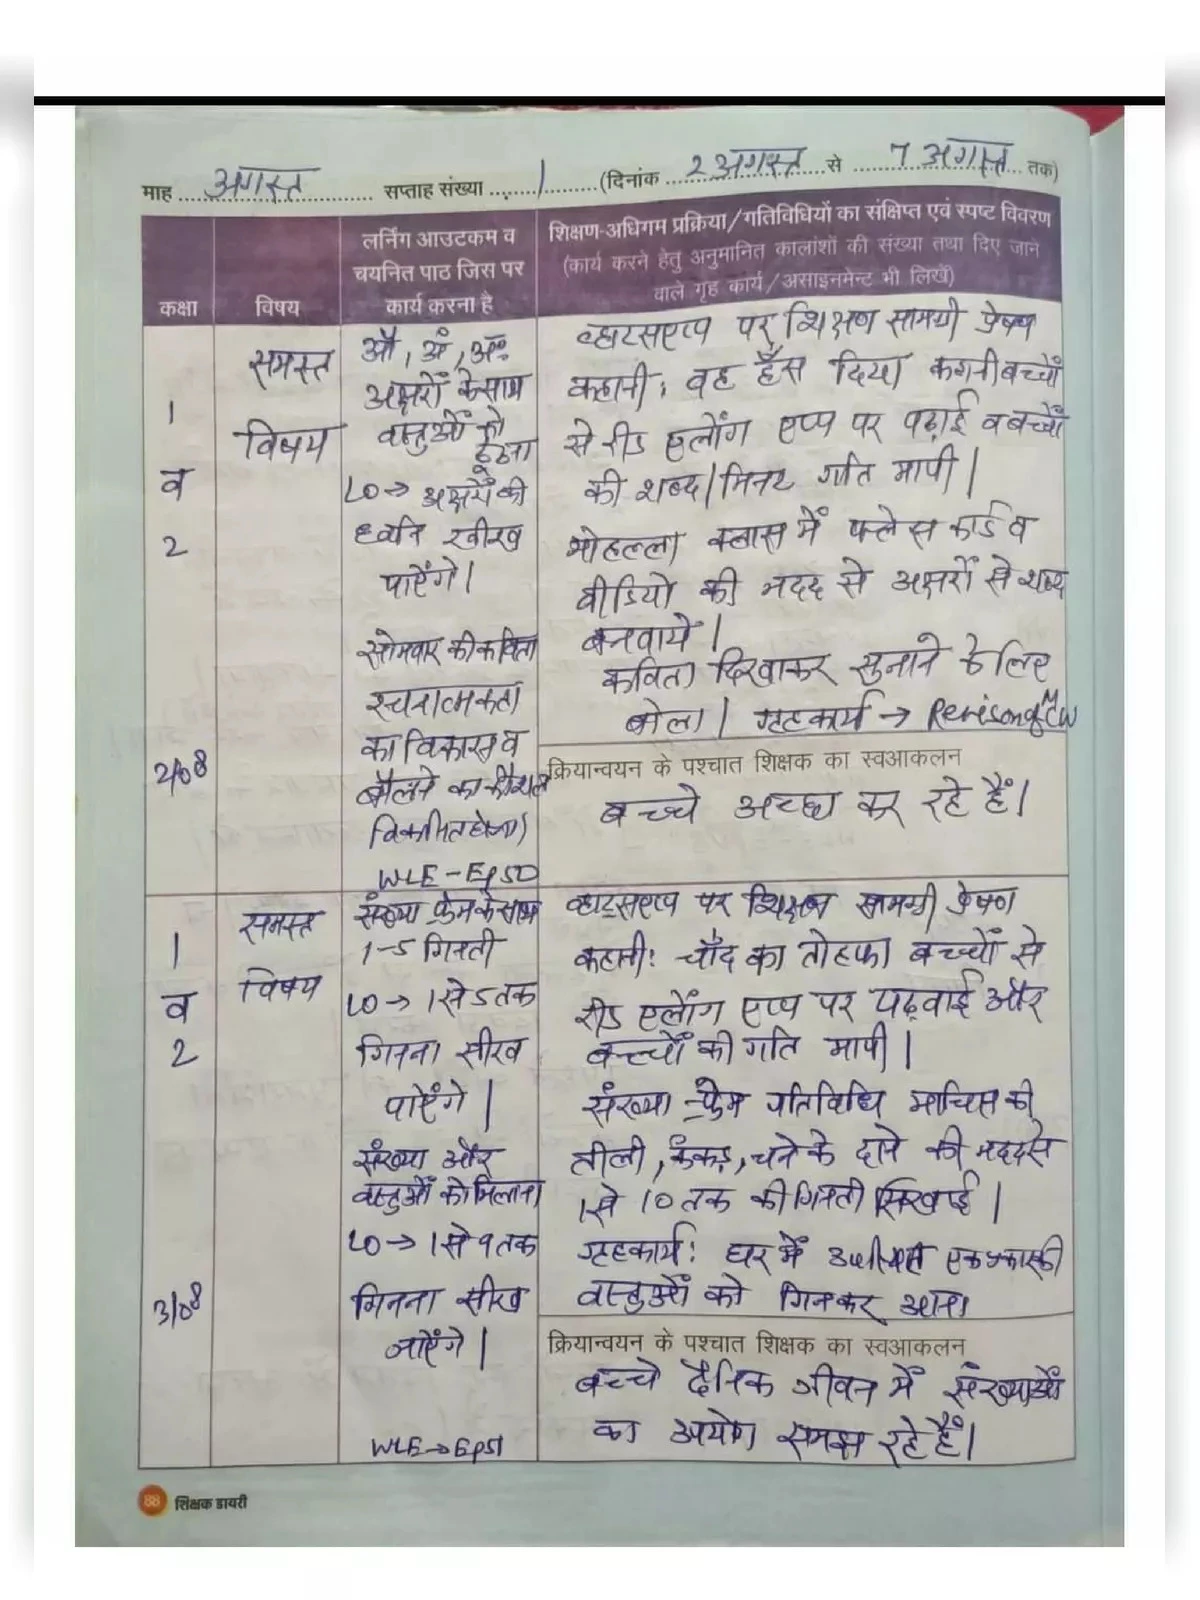 माह अगस्त सप्ताह संख्या 1 (दिनांक 2 अगस्त से 7 अगस्त तक)
कक्षा
विषय
लर्निंग आउटकम व
चयनित पाठ जिस पर
कार्य करना है
शिक्षण-अधिगम प्रक्रिया/गतिविधियों का संक्षिप्त एवं स्पष्ट विवरण
(कार्य करने हेतु अनुमानित कालांशों की संख्या तथा दिए जाने
वाले गृह कार्य/असाइनमेन्ट भी लिखें)
1
व
2
2/08
समस्त
विषय
औ, अं, अः
अक्षरों के साथ
वस्तुओं को
ढूँढना
LO → अक्षरों की
ध्वनि सीख
पाऐंगे।
सोमवार की कविता
रचनात्मकता
का विकास व
बोलने का कौशल
विकसित होगा।
WLE - Ep50
व्हाट्सएप्प पर शिक्षण सामग्री प्रेषण
कहानी: वह हँस दिया कहानी बच्चों
से रीड एलोंग एप्प पर पढ़ाई व बच्चों
की शब्द/मिनट गति मापी।
मोहल्ला क्लास में फ्लेस कार्ड व
वीडियो की मदद से अक्षरों से शब्द
बनवाये।
कविता दिखाकर सुनाने के लिए
बोला। गृहकार्य → Revison of MCW
क्रियान्वयन के पश्चात शिक्षक का स्वआकलन
बच्चे अच्छा कर रहे हैं।
1
व
2
3/08
समस्त
विषय
संख्या फ्रेम के साथ
1-5 गिनती
LO → 1 से 5 तक
गिनना सीख
पाऐंगे।
संख्या और
वस्तुओं को मिलाना
LO → 1 से 9 तक
गिनना सीख
जाऐंगे।
WLE → Ep51
व्हाट्सएप्प पर शिक्षण सामग्री प्रेषण
कहानी: चाँद का तोहफा बच्चों से
रीड एलोंग एप्प पर पढ़वाई और
बच्चों की गति मापी।
संख्या फ्रेम गतिविधि माचिस की
तीली, कंकड़, चने के दाने की मदद से
1 से 10 तक की गिनती सिखाई।
गृहकार्य: घर में उपस्थित एक प्रकार की
वस्तुओं को गिनकर आना
क्रियान्वयन के पश्चात शिक्षक का स्वआकलन
बच्चे दैनिक जीवन में संख्याओं
का उपयोग समझ रहे हैं।
88 शिक्षक डायरी